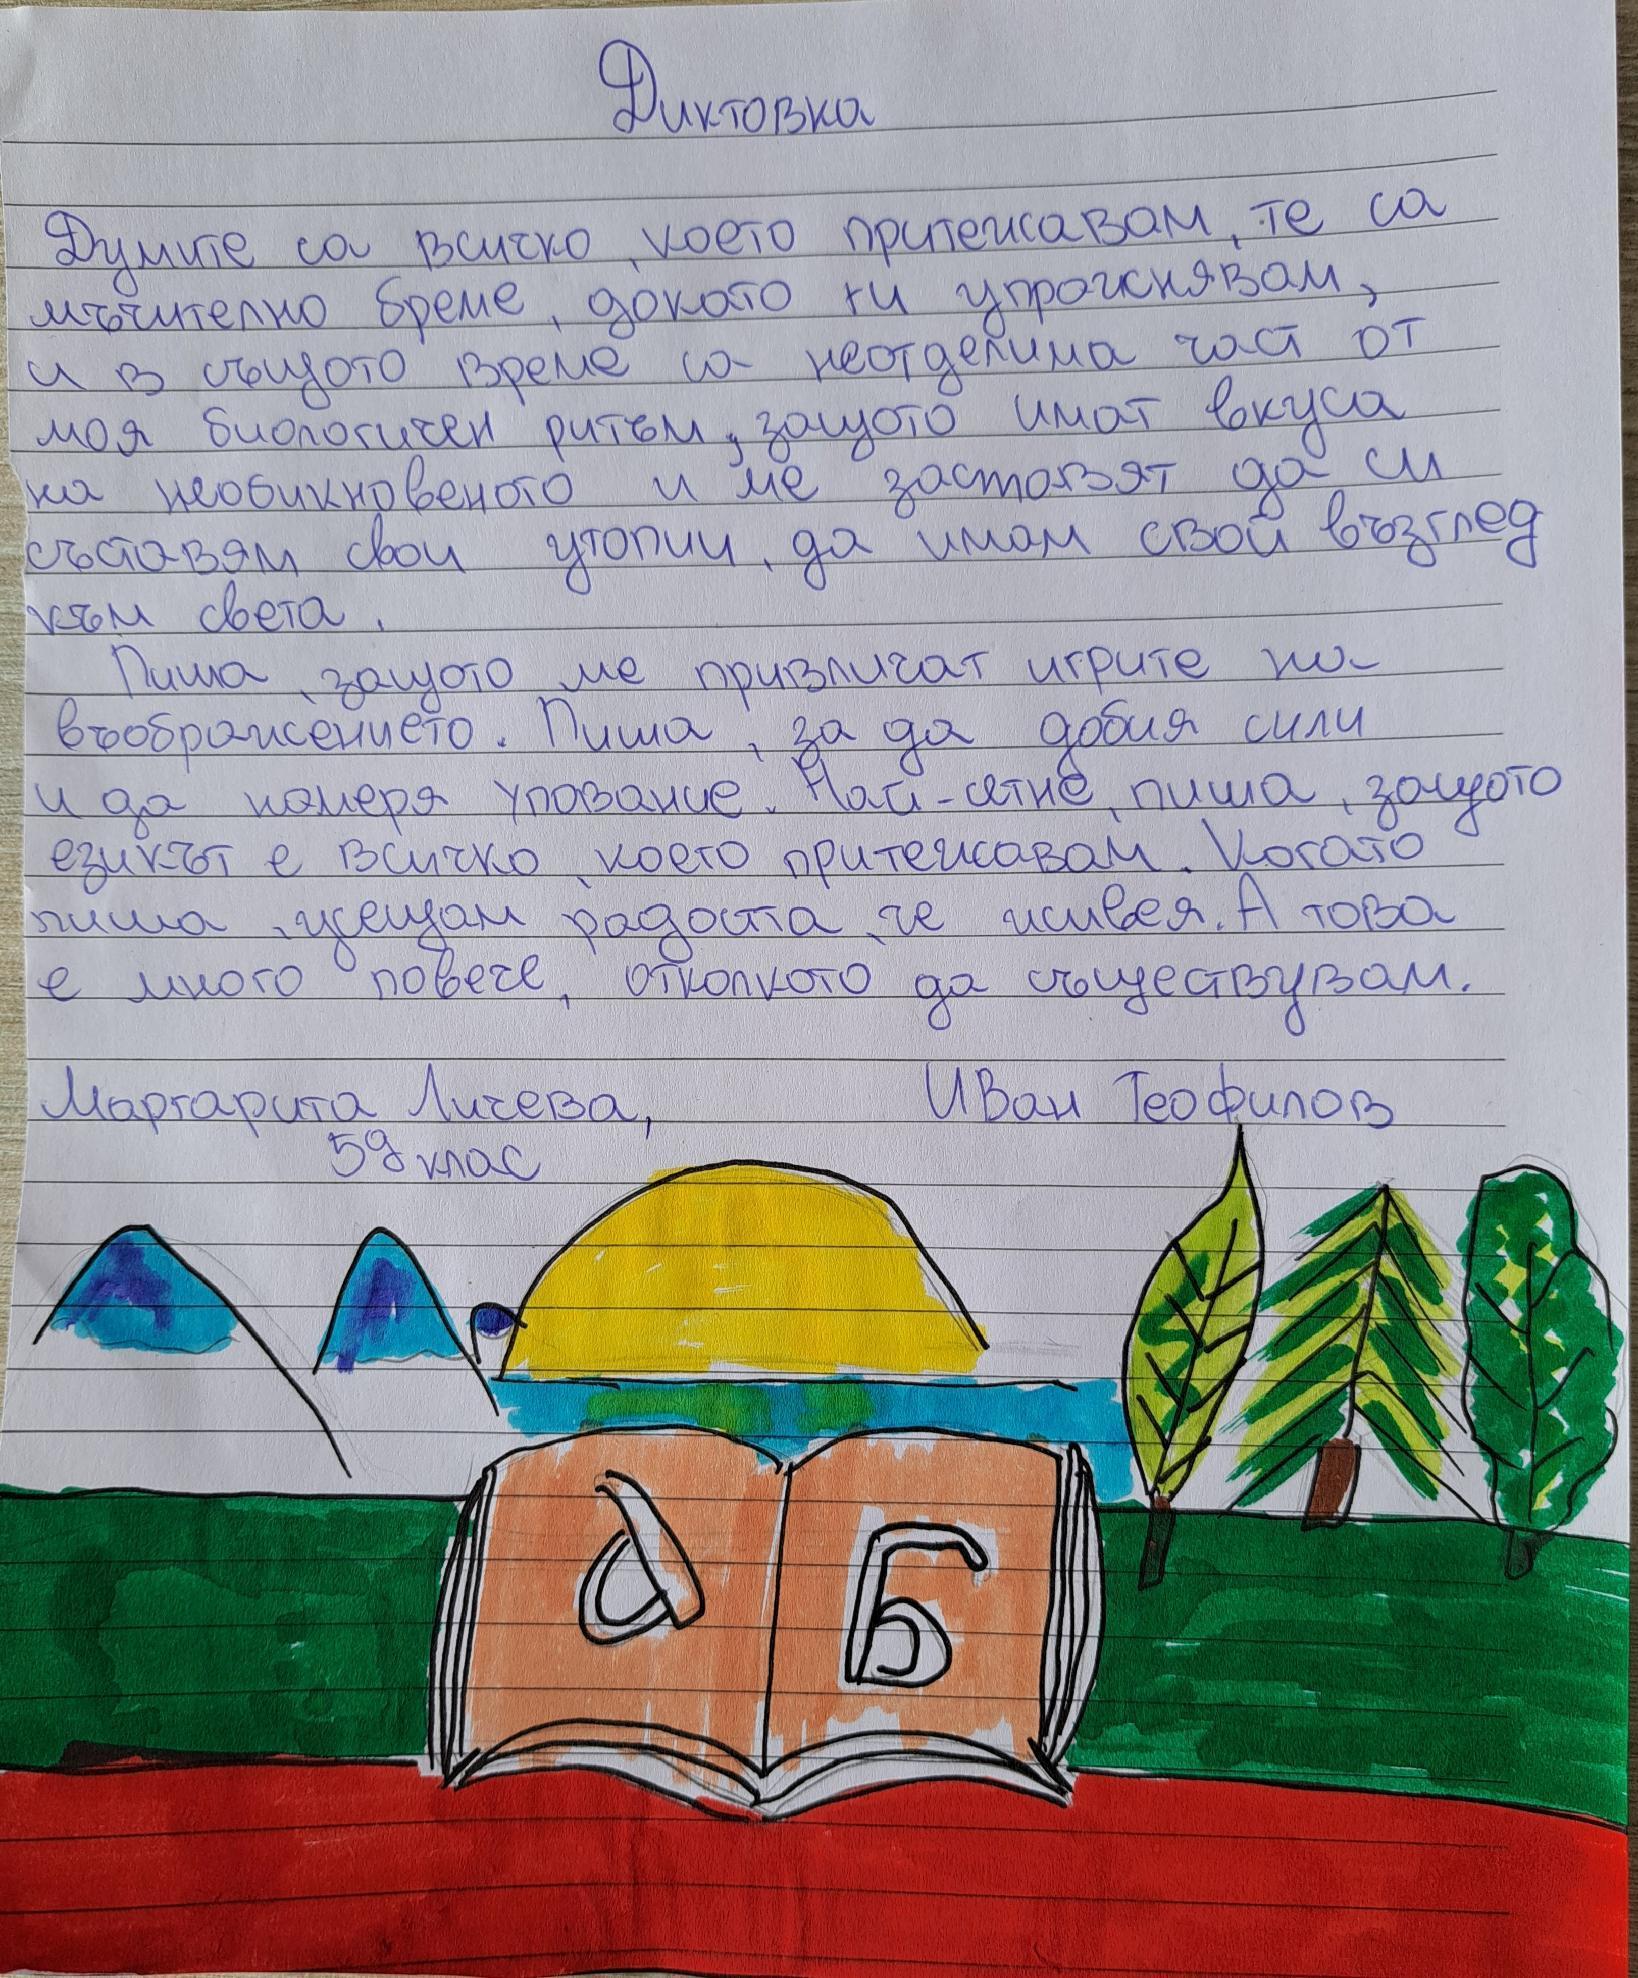 Диктовка
Думите са всичко, което притежавам, те са
мъчително бреме, докато ги упражнявам,
и в същото време са неотделима част от
моя биологичен ритъм, защото имат вкуса
на необикновеното и ме заставят да си
съставям свои утопии, да имам свой възглед
към света.
Пиша, защото ме привличат игрите на
въображението. Пиша, за да добия сили
и да намеря упование. Най-сетне, пиша, защото
езикът е всичко, което притежавам. Когато
пиша, усещам радостта, че живея. А това
е много повече, отколкото да съществувам.
Маргарита Личева, Иван Теофилов
5д клас
А Б